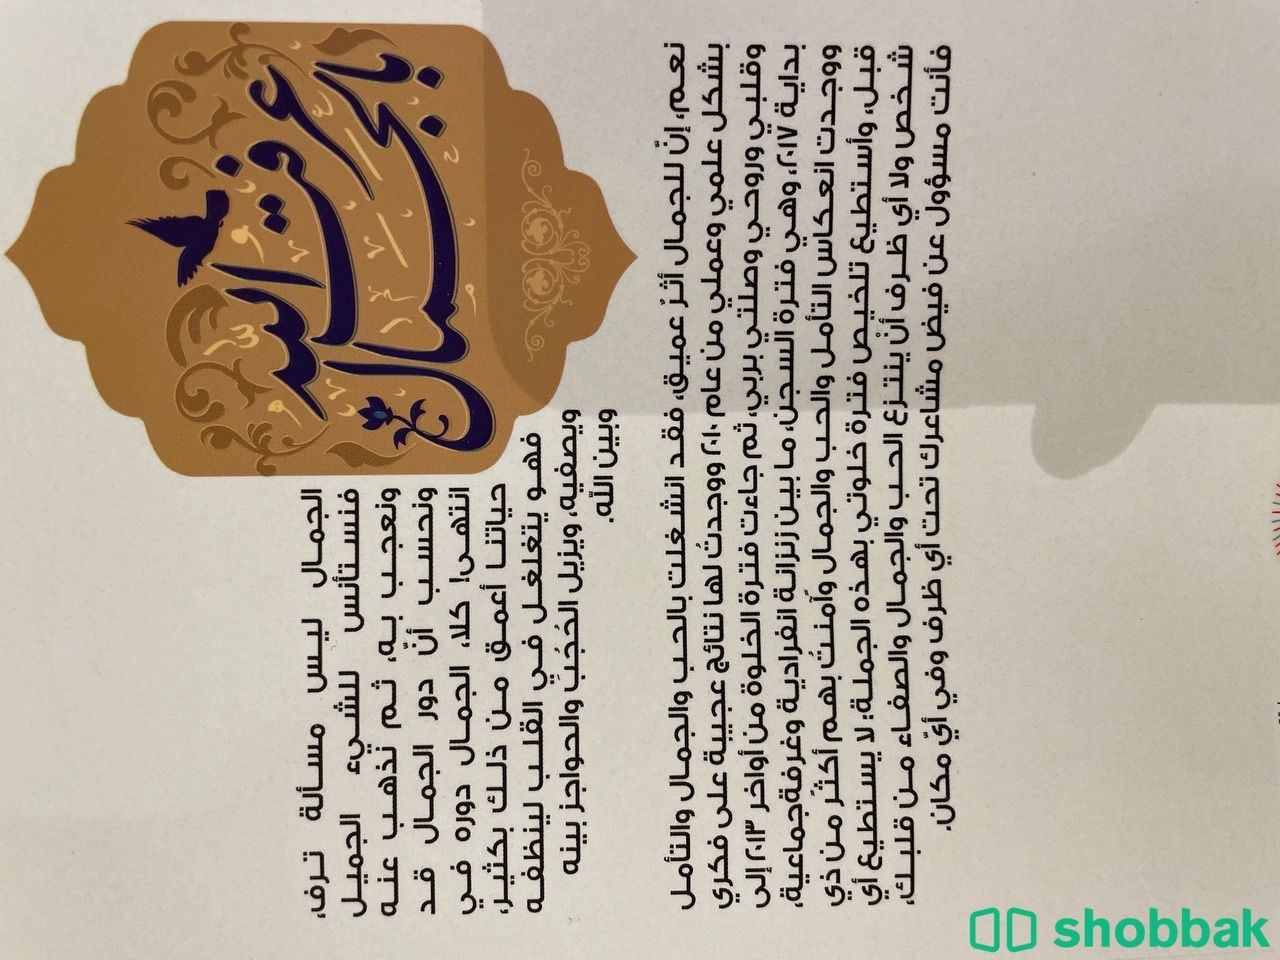 بالجمال
عرفت الله
الجمال ليس مسألة ترف،
فنستأنس للشيء الجميل
ونعجب به، ثم نذهب عنه
ونحسب أنّ دور الجمال قد
انتهى! كلا، الجمال دوره في
حياتنا أعمق من ذلك بكثير،
فهو يتغلغل في القلب لينظفه
ويصفيه، ويزيل الحُجُبَ والحواجز بينه
وبين الله.
نعم، إنّ للجمال أثرٌ عميق، فقد انشغلت بالحب والجمال والتأمل
بشكل علمي وعملي من عام ٢٠١٠ ووجدتُ لها نتائج عجيبة على فكري
وقلبي وروحي وصلتي بربي، ثم جاءت فترة الخلوة من أواخر ٢٠١٣ إلى
بداية ٢٠١٧، وهي فترة السجن، ما بين زنزانة انفرادية وغرفة جماعية،
ووجدت انعكاس التأمل والحب والجمال وآمنتُ بهم أكثَر من ذي
قبل، وأستطيع تلخيص فترة خلوتي بهذه الجملة: لا يستطيع أي
شخص ولا أي ظرف أنْ ينتزع الحب والجمال والصفاء من قلبك،
فأنت مسؤول عن فيض مشاعرك تحت أي ظرف وفي أيّ مكان.
shobbak